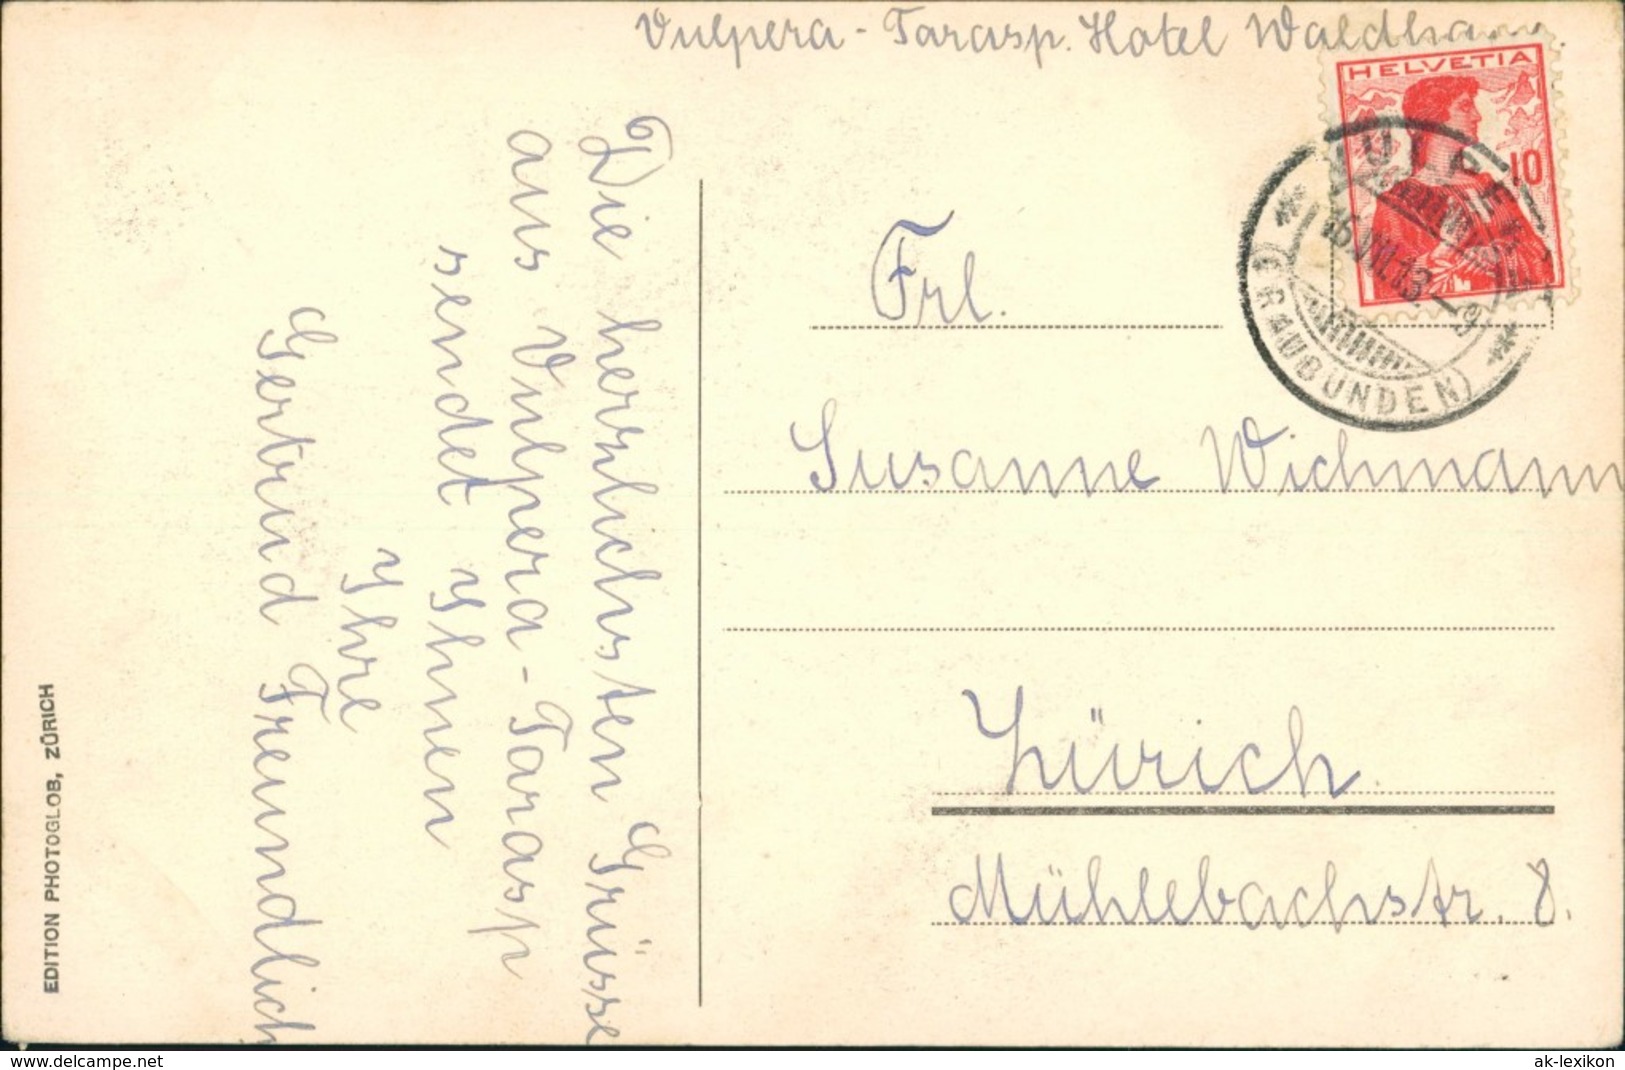 Vulpera - Tarasp. Hotel Waldhaus.
HELVETIA
10
VULPERA
16.VIII.13-9
(GRAUBÜNDEN)
Die herzlichsten Grüsse
aus Vulpera-Tarasp
sendet Ihnen
Ihre
Gertrud Freundlich
Frl.
Susanne Wichmann
Zürich.
Mühlebachstr. 8.
EDITION PHOTOGLOB, ZÜRICH
www.delcampe.net
ak-lexikon